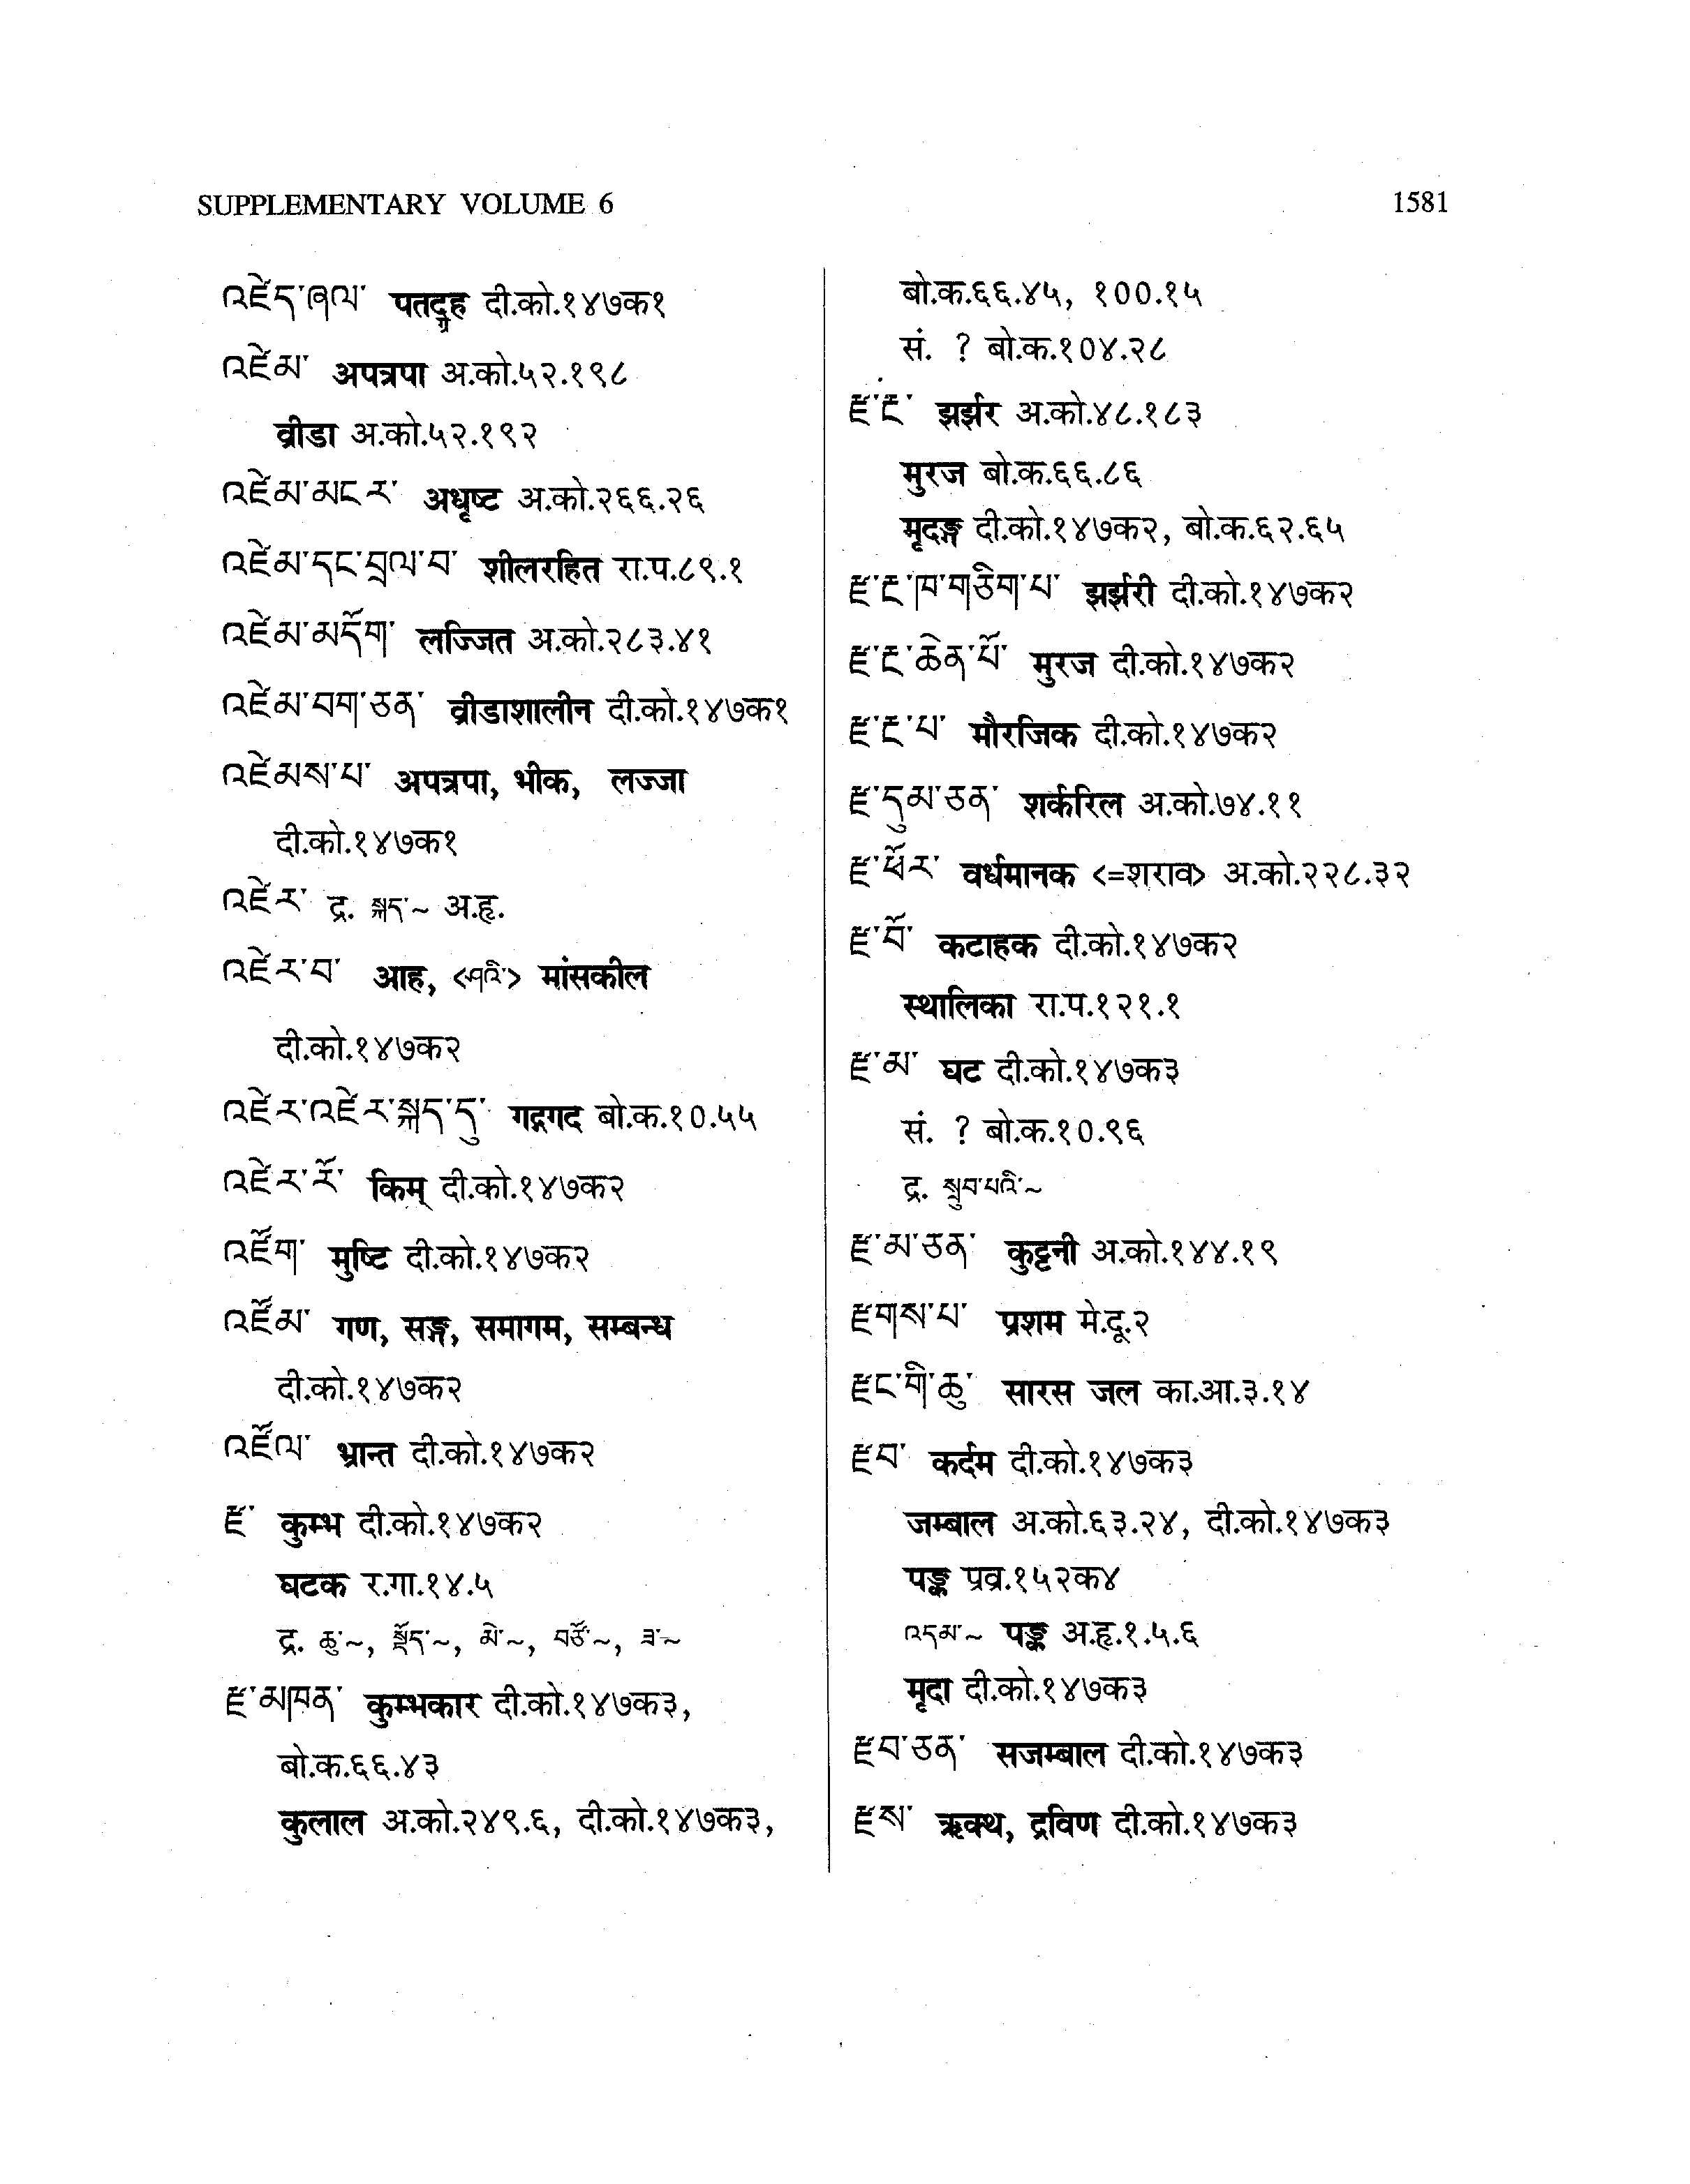 SUPPLEMENTARY VOLUME 6
1581
འཛེད་ཞལ་ पतद्ग्रह दी.को.१४७क१
འཛེམ་ अपत्रपा अ.को.५२.१९८
व्रीडा अ.को.५२.१९२
འཛེམ་མངར་ अधृष्ट अ.को.२६६.२६
འཛེམ་དང་བྲལ་བ་ शीलरहित रा.प.८९.१
འཛེམ་མདོག་ लज्जित अ.को.२८३.४१
འཛེམ་བག་ཅན་ व्रीडाशालीन दी.को.१४७क१
འཛེམས་པ་ अपत्रपा, भीक, लज्जा
दी.को.१४७क१
འཛེར་ द्र. སྐད་~ अ.हृ.
འཛེར་བ་ आह, <ཤའི་> मांसकील
दी.को.१४७क२
འཛེར་འཛེར་སྐད་དུ་ गद्गगद बो.क.१०.५५
འཛེར་རོ་ किम् दी.को.१४७क२
འཛོག་ मुष्टि दी.को.१४७क२
འཛོམ་ गण, सङ्ग, समागम, सम्बन्ध
दी.को.१४७क२
འཛོལ་ भ्रान्त दी.को.१४७क२
རྫ་ कुम्भ दी.को.१४७क२
घटक र.गा.१४.५
द्र. ཆུ་~, སྣོད་~, མེ་~, བཙོ་~, ཟ་~
རྫ་མཁན་ कुम्भकार दी.को.१४७क३,
बो.क.६६.४३
कुलाल अ.को.२४९.६, दी.को.१४७क३,
बो.क.६६.४५, १००.१५
सं. ? बो.क.१०४.२८
རྫ་རྔ་ झर्झर अ.को.४८.१८३
मुरज बो.क.६६.८६
मृदङ्ग दी.को.१४७क२, बो.क.६२.६५
རྫ་རྔ་ཁ་གཅིག་པ་ झर्झरी दी.को.१४७क२
རྫ་རྔ་ཆེན་པོ་ मुरज दी.को.१४७क२
རྫ་རྔ་པ་ मौरजिक दी.को.१४७क२
རྫ་དུམ་ཅན་ शर्करिल अ.को.७४.११
རྫ་ཕོར་ वर्धमानक <=शराव> अ.को.२२८.३२
རྫ་བོ་ कटाहक दी.को.१४७क२
स्थालिका रा.प.१२१.१
རྫ་མ་ घट दी.को.१४७क३
सं. ? बो.क.१०.९६
द्र. སྦུབ་པའི་~
རྫ་མ་ཅན་ कुट्टनी अ.को.१४४.१९
རྫགས་པ་ प्रशम मे.दू.२
རྫང་གི་ཆུ་ सारस जल का.आ.३.१४
རྫབ་ कर्दम दी.को.१४७क३
जम्बाल अ.को.६३.२४, दी.को.१४७क३
पङ्क प्रव्र.१५२क४
འདམ་~ पङ्क अ.हृ.१.५.६
मृदा दी.को.१४७क३
རྫབ་ཅན་ सजम्बाल दी.को.१४७क३
རྫས་ ऋक्थ, द्रविण दी.को.१४७क३